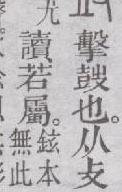 擊鼓也。从攴
讀若屬。鉉本
無此